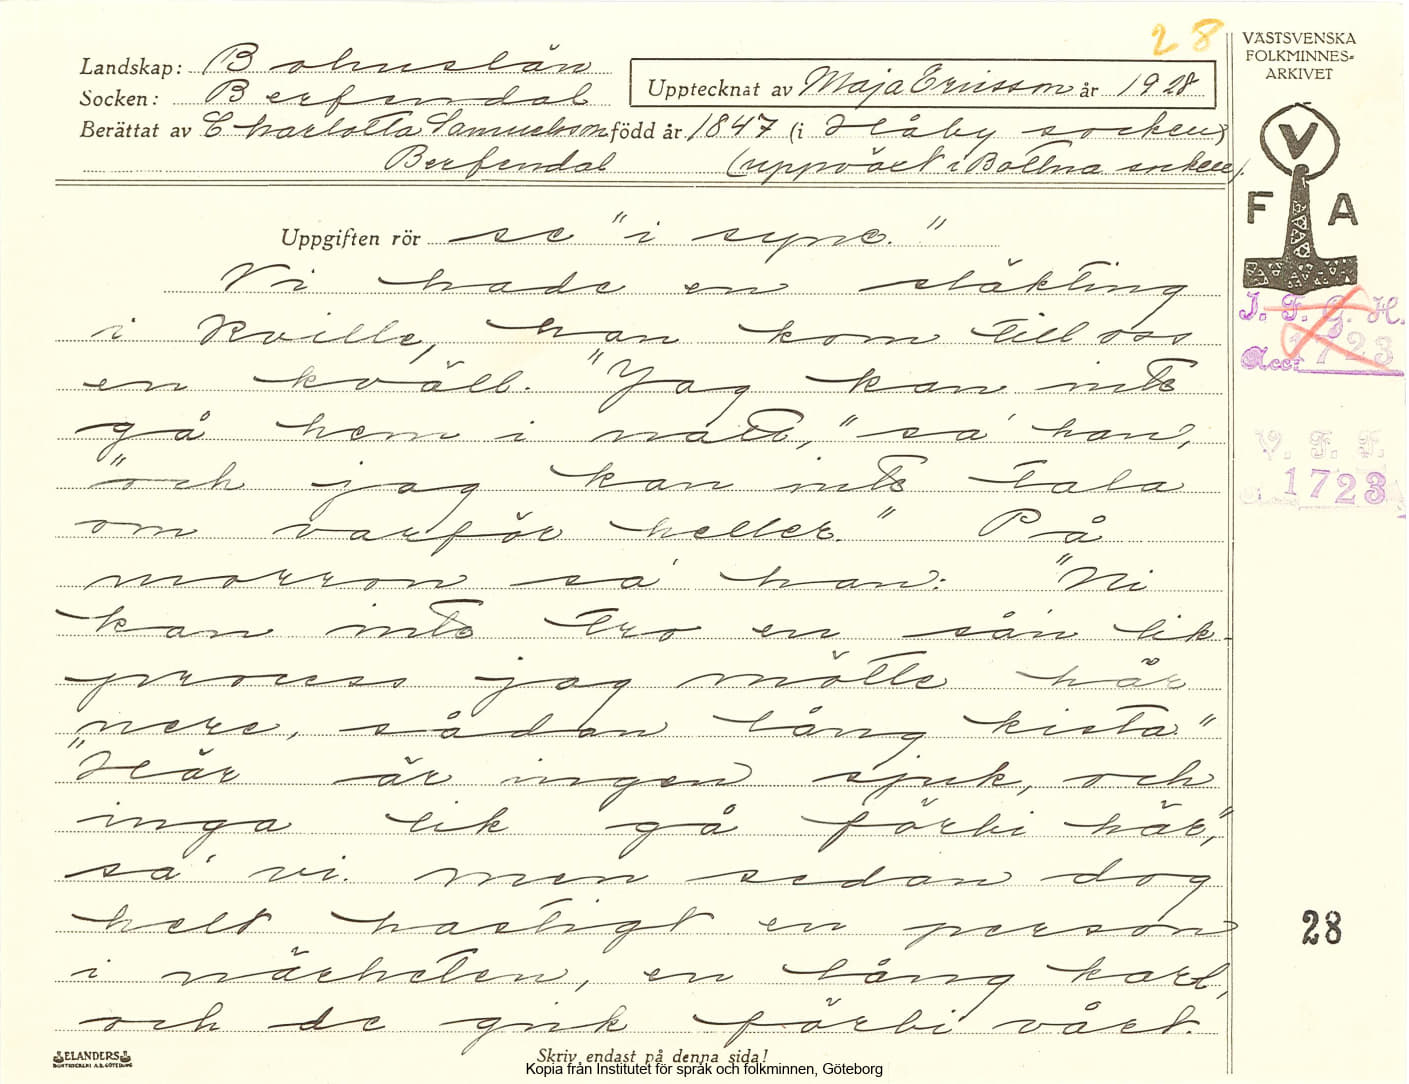 28
VÄSTSVENSKA
FOLKMINNES-
ARKIVET
Landskap: Bohuslän
Socken: Berfendal
Upptecknat av Maja Ericsson år 1928
Berättat av Charlotta Samuelsson född år 1847 (i Håby socken)
Berfendal (uppväxt i Bottna socken).
V
F A
Uppgiften rör se "i syne."
Vi hade en släkting
i Kville, han kom till oss
en kväll. "Jag kan inte
gå hem i natt," sa' han,
"och jag kan inte tala
om varför heller." På
morron sa' han: "Ni
kan inte tro en sån lik-
process jag mötte här
nere, sådan lång kista"
"Här är ingen sjuk, och
inga lik gå förbi här,"
sa' vi. men sedan dog
helt hastigt en person
i närheten, en lång karl,
och de gick förbi vårt.
I. F. G. H.
Acc. 1723
V. F. F.
1723
28
ELANDERS
BOKTRYCKERI A.B. GÖTEBORG
Skriv endast på denna sida!
Kopia från Institutet för språk och folkminnen, Göteborg